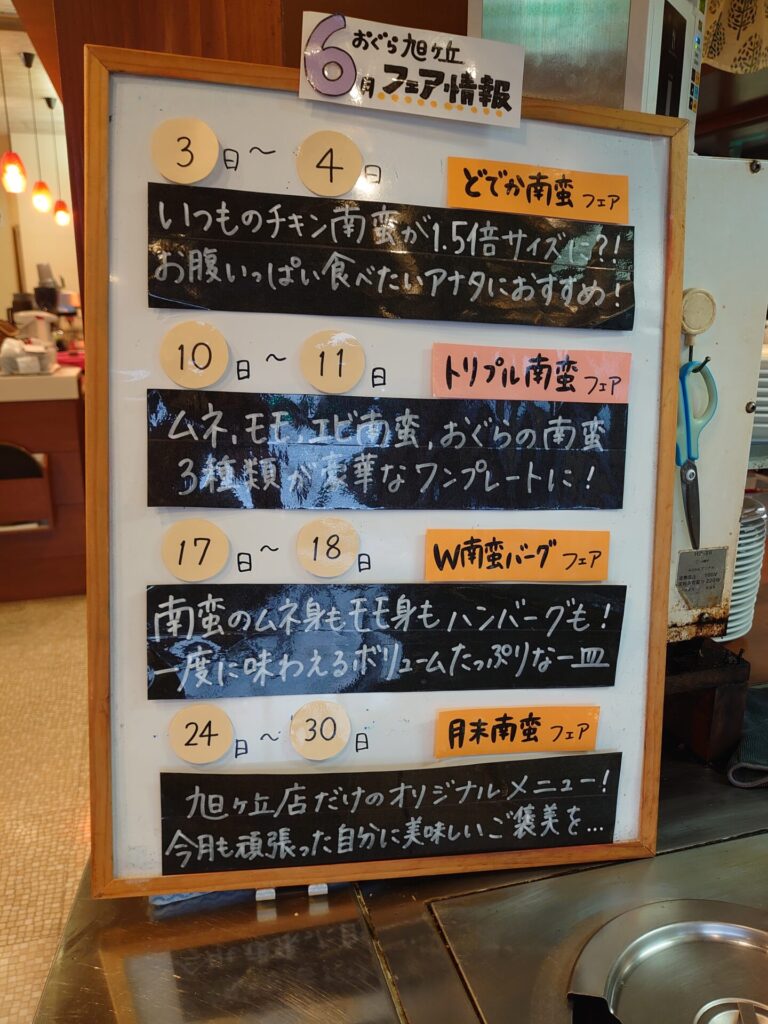 おぐら旭ヶ丘
6月フェア情報
3日～4日
どでか南蛮フェア
いつものチキン南蛮が1.5倍サイズに?!
お腹いっぱい食べたいアナタにおすすめ!
10日～11日
トリプル南蛮フェア
ムネ,モモ,エビ南蛮,おぐらの南蛮
3種類が豪華なワンプレートに!
17日～18日
W南蛮バーグフェア
南蛮のムネ身もモモ身もハンバーグも!
一度に味わえるボリュームたっぷりな一皿
24日～30日
月末南蛮フェア
旭ヶ丘店だけのオリジナルメニュー!
今月も頑張った自分に美味しいご褒美を...